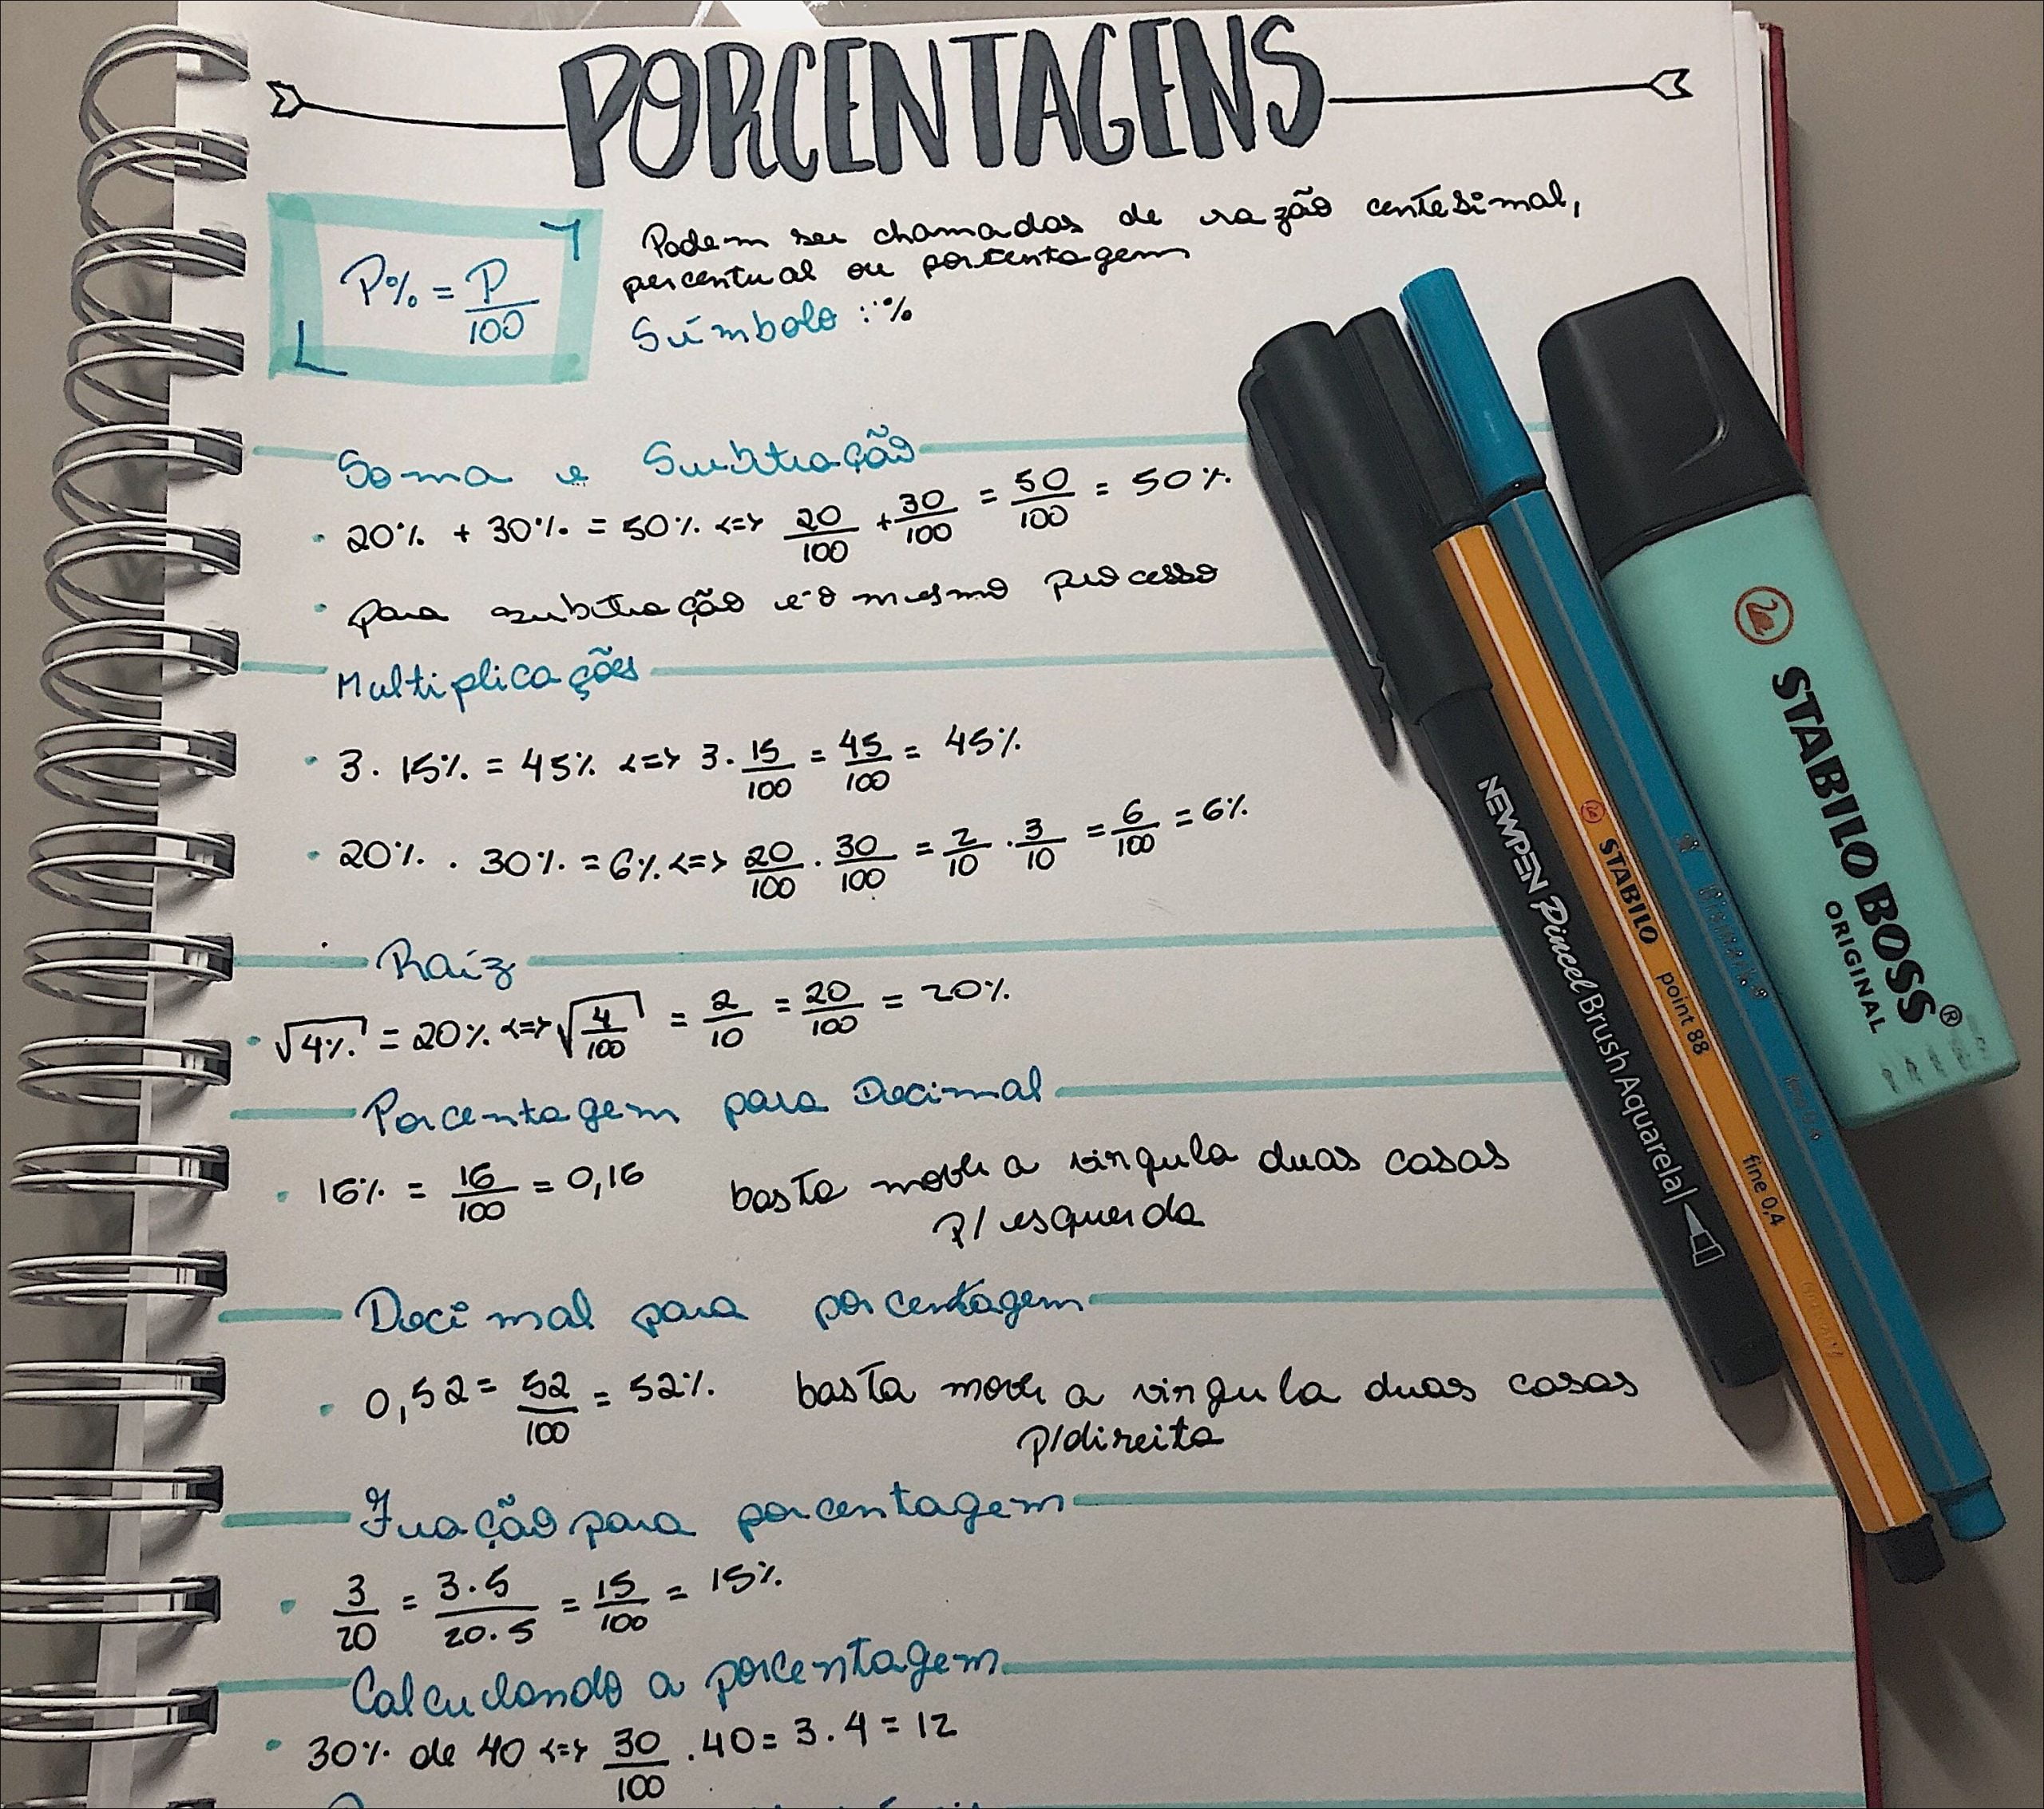 PORCENTAGENS
P% = P/100
Podem ser chamadas de razão centesimal,
percentual ou porcentagem
Símbolo : %
Soma e Subtração
• 20% + 30% = 50% <=> 20/100 + 30/100 = 50/100 = 50%
• para subtração é o mesmo processo
Multiplicações
• 3 . 15% = 45% <=> 3 . 15/100 = 45/100 = 45%
• 20% . 30% = 6% <=> 20/100 . 30/100 = 2/10 . 3/10 = 6/100 = 6%
Raíz
• √4% = 20% <=> √4/100 = 2/10 = 20/100 = 20%
Porcentagem para Decimal
• 16% = 16/100 = 0,16 basta mover a vírgula duas casas
p/ esquerda
Decimal para porcentagem
• 0,52 = 52/100 = 52% basta mover a vírgula duas casas
p/direita
Fração para porcentagem
• 3/20 = 3.5/20.5 = 15/100 = 15%
Calculando a porcentagem
• 30% de 40 <=> 30/100 . 40 = 3 . 4 = 12
NEWPEN Pincel Brush Aquarela
STABILO point 88 fine 0,4
STABILO BOSS®
ORIGINAL